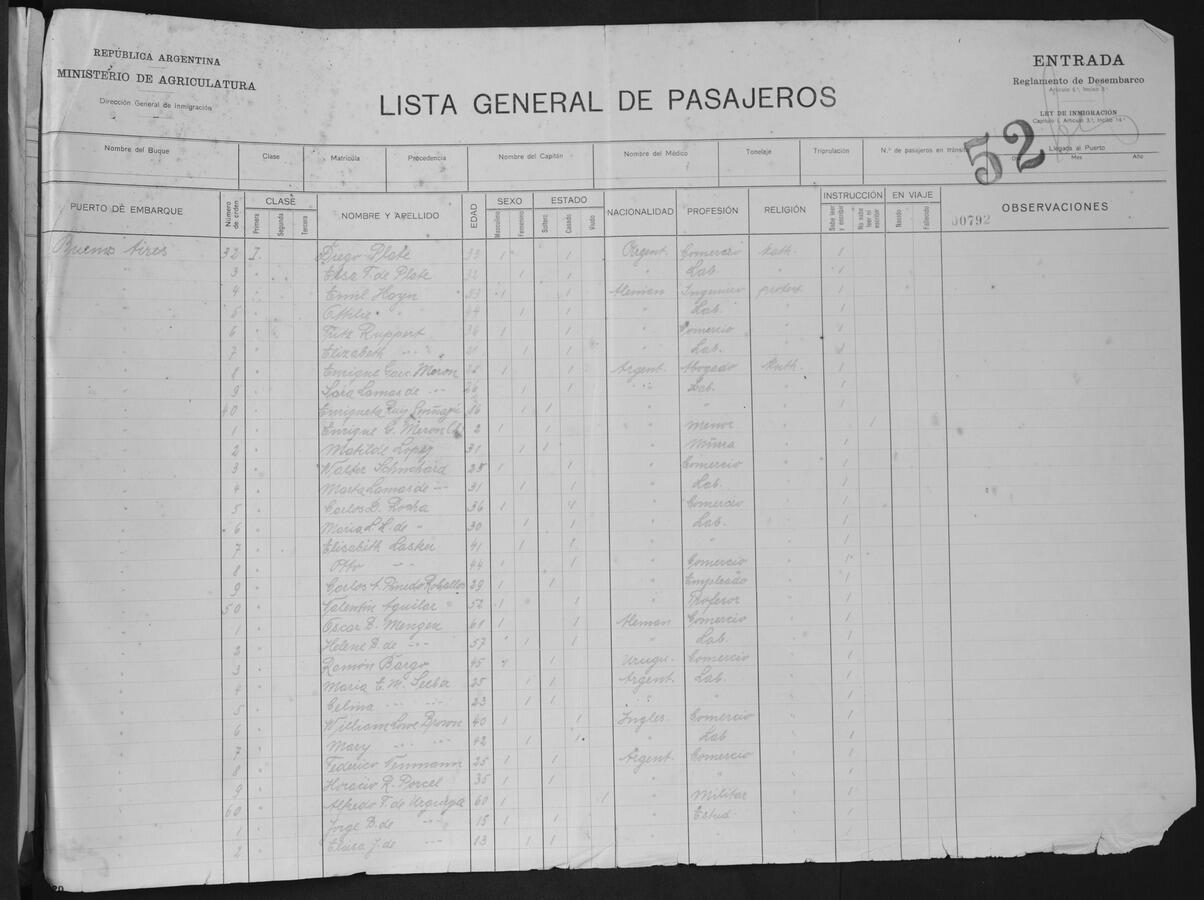 REPÚBLICA ARGENTINA
MINISTERIO DE AGRICULATURA
Dirección General de Inmigración
LISTA GENERAL DE PASAJEROS
ENTRADA
Reglamento de Desembarco
LEY DE INMIGRACIÓN
52
Nombre del Buque Clase Matrícula Procedencia Nombre del Capitán Nombre del Médico Tonelaje Tripulación N.º de pasajeros en tránsito Llegada al Puerto
Día Mes Año
PUERTO DE EMBARQUE Número de orden CLASE Primera Segunda Tercera NOMBRE Y APELLIDO EDAD SEXO Masculino Femenino ESTADO Soltero Casado Viudo NACIONALIDAD PROFESIÓN RELIGIÓN INSTRUCCIÓN Sabe leer y escribir No sabe leer ni escribir EN VIAJE Nacido Fallecido OBSERVACIONES
00792
Buenos Aires 32 I. Diego Plate 33 1 1 Argent. Comercio Kath. 1
" 3 " Elsa T. de Plate 32 1 1 " Lab. " 1
" 4 " Emil Hoyn 53 1 1 Aleman Ingeniero protest 1
" 5 " " 44 1 1 " Lab. " 1
" 6 " Fritz Ruppert 36 1 1 " Comercio " 1
" 7 " Elizabeth " 21 1 1 " Lab. " 1
" 8 " Enrique Garc. Meron 1 1 Argent. Abogado Kath. 1
" 9 " Sara Lamas de " 1 1 " Lab. " 1
" 40 " Enriqueta Ruy 1 1 " " " 1
" 1 " Enrique G. Meron (h) 2 1 1 " menor " 1
" 2 " Matilde López 31 1 1 " " 1
" 3 " Walter Schuchard 25 1 1 " Comercio " 1
" 4 " Marta Lamas de " 31 1 1 " Lab. " 1
" 5 " Carlos D. Rocha 36 1 1 " Comercio " 1
" 6 " Maria L. L. de " 30 1 1 " Lab. " 1
" 7 " Elisabeth Lasker 41 1 1 " " " 1
" 8 " Otto " 44 1 1 " Comercio " 1
" 9 " Carlos A. Pinedo Roballos 29 1 1 " Empleado " 1
" 50 " Valentin Aguilar 52 1 1 " Profesor " 1
" 1 " Oscar B. Mengen 61 1 1 Aleman Comercio " 1
" 2 " Helene B. de " 57 1 1 " Lab. " 1
" 3 " Ramón Bargo 45 1 1 Urugu. Comercio " 1
" 4 " Maria E. M. Seeber 25 1 1 Argent. Lab. " 1
" 5 " Celina " 23 1 1 " " " 1
" 6 " William Lowe Brown 40 1 1 Ingles Comercio " 1
" 7 " Mary " 42 1 1 " Lab " 1
" 8 " Federico Tenmann 25 1 1 Argent. Comercio " 1
" 9 " Horacio R. Porcel 35 1 1 " " " 1
" 60 " Alfredo F. de Urquiza 60 1 1 " Militar " 1
" 1 " Jorge B. de " 15 1 1 " Estud " 1
" 2 " Elvira J. de " 13 1 1 " " " 1